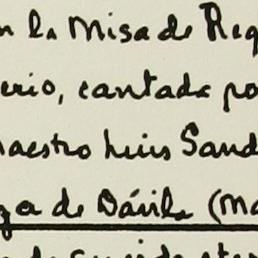 n la Misa de Req
erio, cantada po
maestro Luis Sand
ga de Dávila (Ma